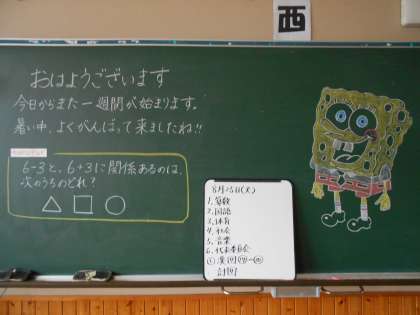 西
おはようございます
今日からまた一週間が始まります。
暑い中、よくがんばって来ましたね!!
6-3と、6+3に関係あるのは、
次のうちのどれ?
△ □ ○
1. 算数
2. 国語
3. 体育
4. 社会
5. 音楽
6. 代表委員会